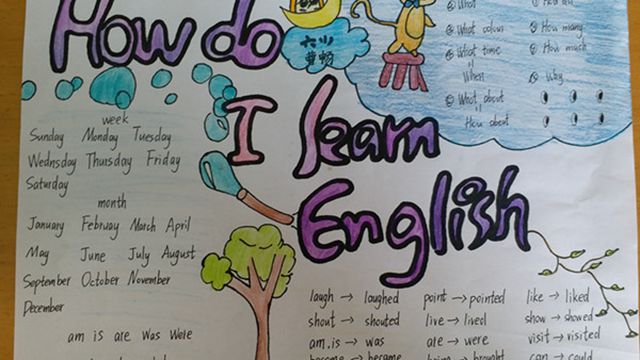 How do
I learn
English
What
What colour How many
What time How much
When Why
What about
How about
week
Sunday Monday Tuesday
Wednsday Thursday Friday
Saturday
month
January Februay March April
May June July August
September October November
December
am is are was were
laugh → laughed point → pointed like → liked
shout → shouted live → lived show → showed
am.is → was are → were visit → visited
become → became bring → brought can → could